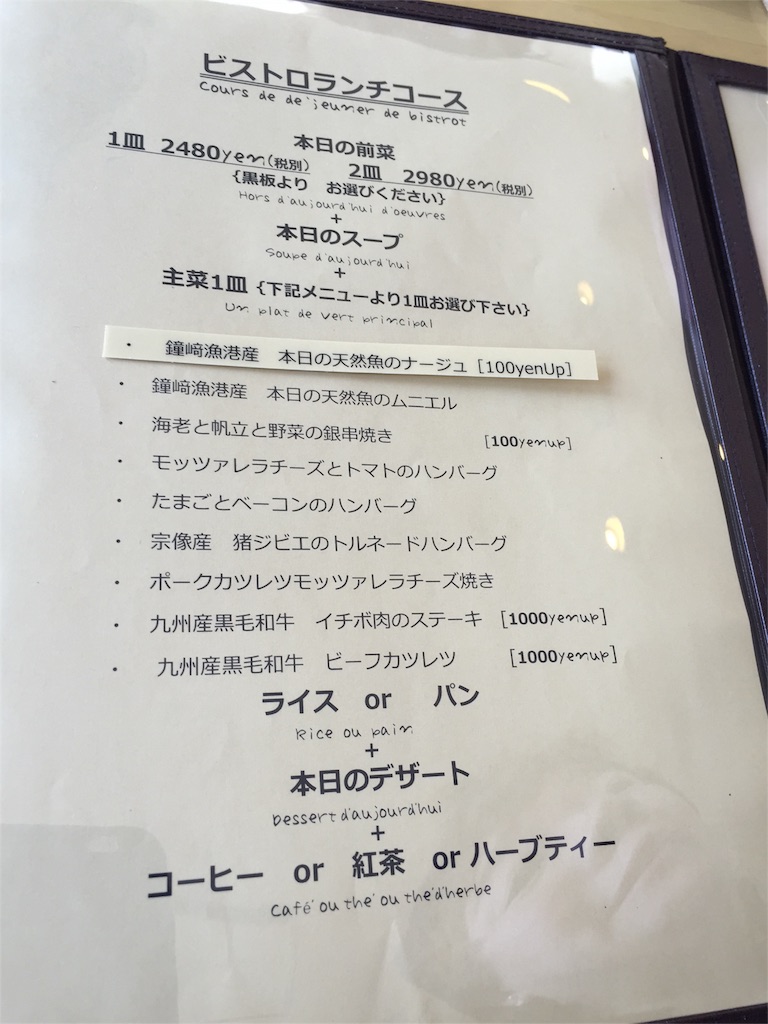 ビストロランチコース
Cours de de'jeuner de bistrot
本日の前菜
1皿 2480yen(税別) 2皿 2980yen(税別)
{黒板より お選びください}
Hors d'aujourd'hui d'oeuvres
+
本日のスープ
Soupe d'aujourd'hui
+
主菜1皿 {下記メニューより1皿お選び下さい}
Un plat de vert principal
・ 鐘﨑漁港産 本日の天然魚のナージュ [100yenUp]
・ 鐘﨑漁港産 本日の天然魚のムニエル
・ 海老と帆立と野菜の銀串焼き [100yenup]
・ モッツァレラチーズとトマトのハンバーグ
・ たまごとベーコンのハンバーグ
・ 宗像産 猪ジビエのトルネードハンバーグ
・ ポークカツレツモッツァレラチーズ焼き
・ 九州産黒毛和牛 イチボ肉のステーキ [1000yenup]
・ 九州産黒毛和牛 ビーフカツレツ [1000yenup]
ライス or パン
Rice ou pain
+
本日のデザート
Dessert d'aujourd'hui
+
コーヒー or 紅茶 or ハーブティー
Café' ou the' ou the'd'herbe